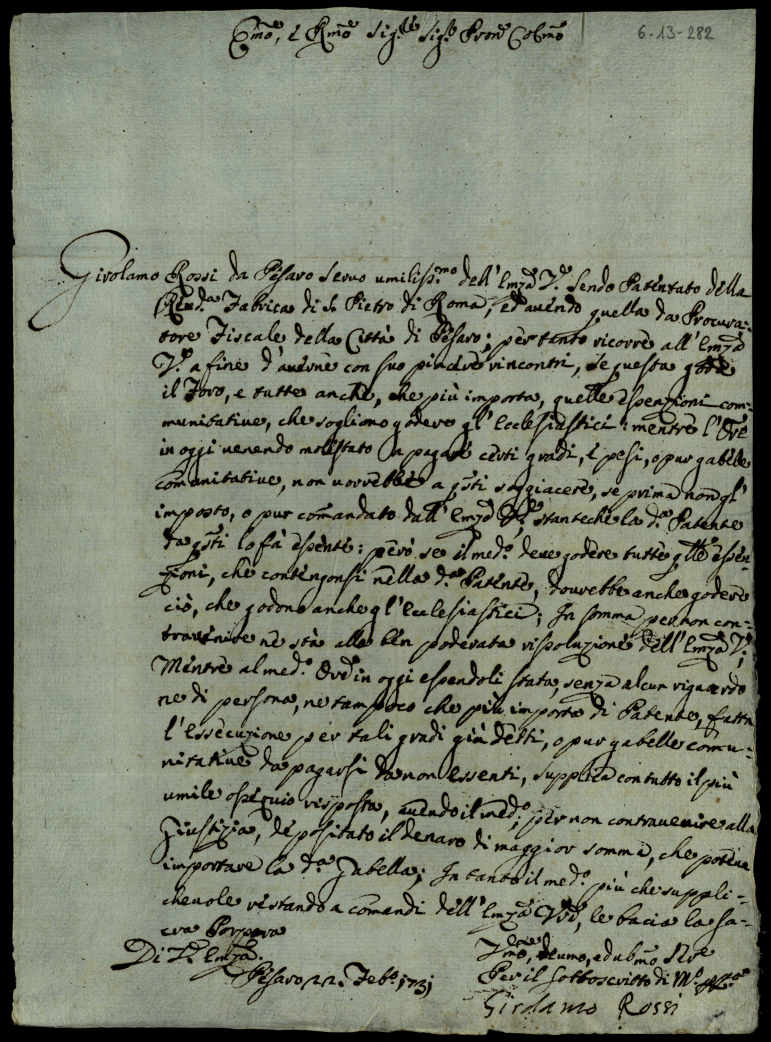 Emo, e Rmo Sigre Sigr Pron Colmo
6-13-282
Girolamo Rossi da Pesaro seruo umilissmo dell'Emza Va sendo Patentato della
Reuda Fabrica di S. Pietro di Roma, ed auendo quella da Procura-
tore Fiscale della Città di Pesaro; per tanto ricorre all'Emza
Va a fine d'auerne con suo piacere rincontri, se questa gode
il Foro, e tutte anche, che più importa, quelle essenzioni com-
munitatiue, che sogliono godere gl'Ecclesiastici: mentre l'Ore
in oggi uenendo molestato a pagare certi gradi, e pesi, o pur gabelle
comunitatiue, non uorrebbe a qsti soggiacere, se prima non gl'
imposto, o pur comandato dall'Emza Va, stanteche la da Patente
da qsti lo fà essente: però se il medo deue godere tutte qlle essen-
zioni, che contengonsi nella da Patente, dourebbe anche godere
ciò, che godono anche gl'Ecclesiastici; In somma per non con-
trauenire ne stà alla ben ponderata rissoluzione dell'Emza Va;
Mentre al medo Ore in oggi essendoli stata, senza alcun riguardo
ne di persona, ne tampoco che più importa di Patente, fatta
l'Essecuzione per tali gradi già detti, o pur gabelle comu-
nitatiue da pagarsi da non essenti, supplica con tutto il più
umile ossequio risposta, auendo il medo, per non contrauenire alla
Giustizia, depositato il denaro di maggior somma, che poteua
importare la da Gabella; In tanto il medo più che suppli-
cheuole restando a comandi dell'Emza Va, le bacia la Sa-
cra Porpora
Di Va Emza
Pesaro 22 Febo 1731
Vmo, deumo, ed ubmo Sre
Per il Sottoscritto di Mo
Girolamo Rossi